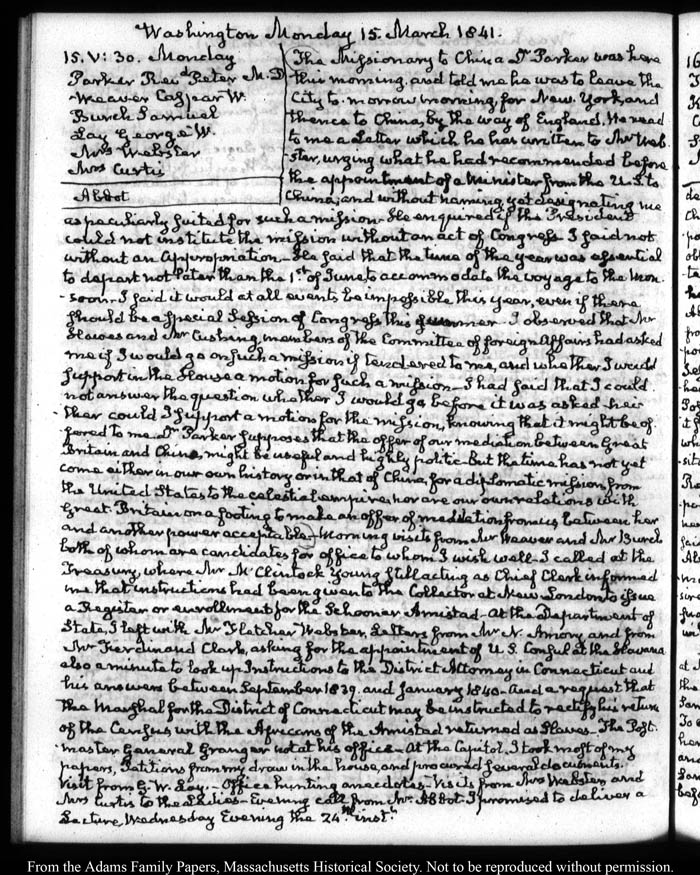 Washington Monday 15. March 1841.
15. V: 30. Monday
Parker Revd. Peter M.D
Weaver Caspar W.
Burch Samuel
Lay George W.
Mrs Webster
Mrs Curtis
Abbot
The Missionary to China Dr. Parker was here
this morning, and told me he was to leave the
City to-morrow morning, for New-York, and
thence to China, by the way of England. He read
to me a Letter which he has written to Mr Web-
ster, urging what he had recommended before
the appointment of a Minister from the U.S. to
China, and without naming, yet designating me
as peculiarly suited for such a mission. He enquired if the President
could not institute the mission without an act of Congress. I said not
without an Appropriation. He said that the time of the year was essential
to depart not later than the 1st. of June to accommodate the voyage to the Mon-
-soon. I said it would at all events be impossible this year, even if there
should be a special Session of Congress this summer. I observed that Mr
Howes and Mr Cushing, members of the Committee of foreign Affairs had asked
me if I would go on such a mission if tendered to me, and whether I would
support in the House a motion for such a mission. I had said that I could
not answer the question whether I would go before it was asked nei-
-ther could I support a motion for the mission, knowing that it might be of-
fered to me. Dr. Parker supposes that the offer of our mediation between Great
Britain and China, might be useful and highly politic but the time has not yet
come either in our own history or in that of China, for a diplomatic mission from
the United States to the celestial empire, nor are our own relations with
Great-Britain on a footing to make an offer of mediation from us between her
and another power acceptable. Morning visits from Mr Weaver and Mr Burch
both of whom are candidates for office to whom I wish well. I called at the
Treasury, where Mr McClintock Young still acting as Chief Clerk informed
me that instructions had been given to the Collector at New London to issue
a Register or enrollment for the Schooner Amistad. At the Department of
State, I left with Mr Fletcher Webster, Letters from Mr N. Amory, and from
Mr Ferdinand Clark, asking for the appointment of U.S. Consul at the Havana
also a minute to look up Instructions to the District Attorney in Connecticut and
his answers between September 1839. and January 1840. And a request that
the Marshal for the District of Connecticut may be instructed to rectify his return
of the Census with the Africans of the Amistad returned as Slaves. The Post-
master General Granger not at his office. At the Capitol, I took most of my
papers, Petitions from my draw in the house, and procured several documents.
Visit from G. W. Lay. Office hunting anecdotes. Visits from Mrs Webster and
Mrs Curtis to the Ladies. Evening call from Mr. Abbot. I promised to deliver a
Lecture, Wednesday Evening the 24th. inst.
From the Adams Family Papers, Massachusetts Historical Society. Not to be reproduced without permission.